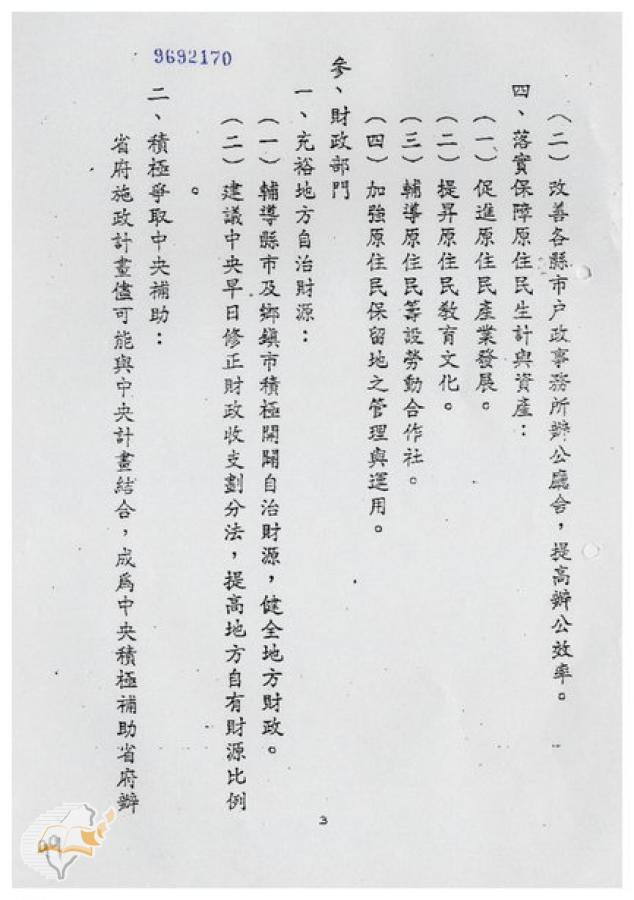 9692170
（二）改善各縣市户政事務所辦公廳舍，提高辦公效率。
四、落實保障原住民生計與資產：
（一）促進原住民產業發展。
（二）提昇原住民教育文化。
（三）輔導原住民籌設勞動合作社。
（四）加強原住民保留地之管理與運用。
參、財政部門
一、充裕地方自治財源：
（一）輔導縣市及鄉鎮市積極開闢自治財源，健全地方財政。
（二）建議中央早日修正財政收支劃分法，提高地方自有財源比例
。
二、積極爭取中央補助：
省府施政計畫儘可能與中央計畫結合，成爲中央積極補助省府辦
3
99